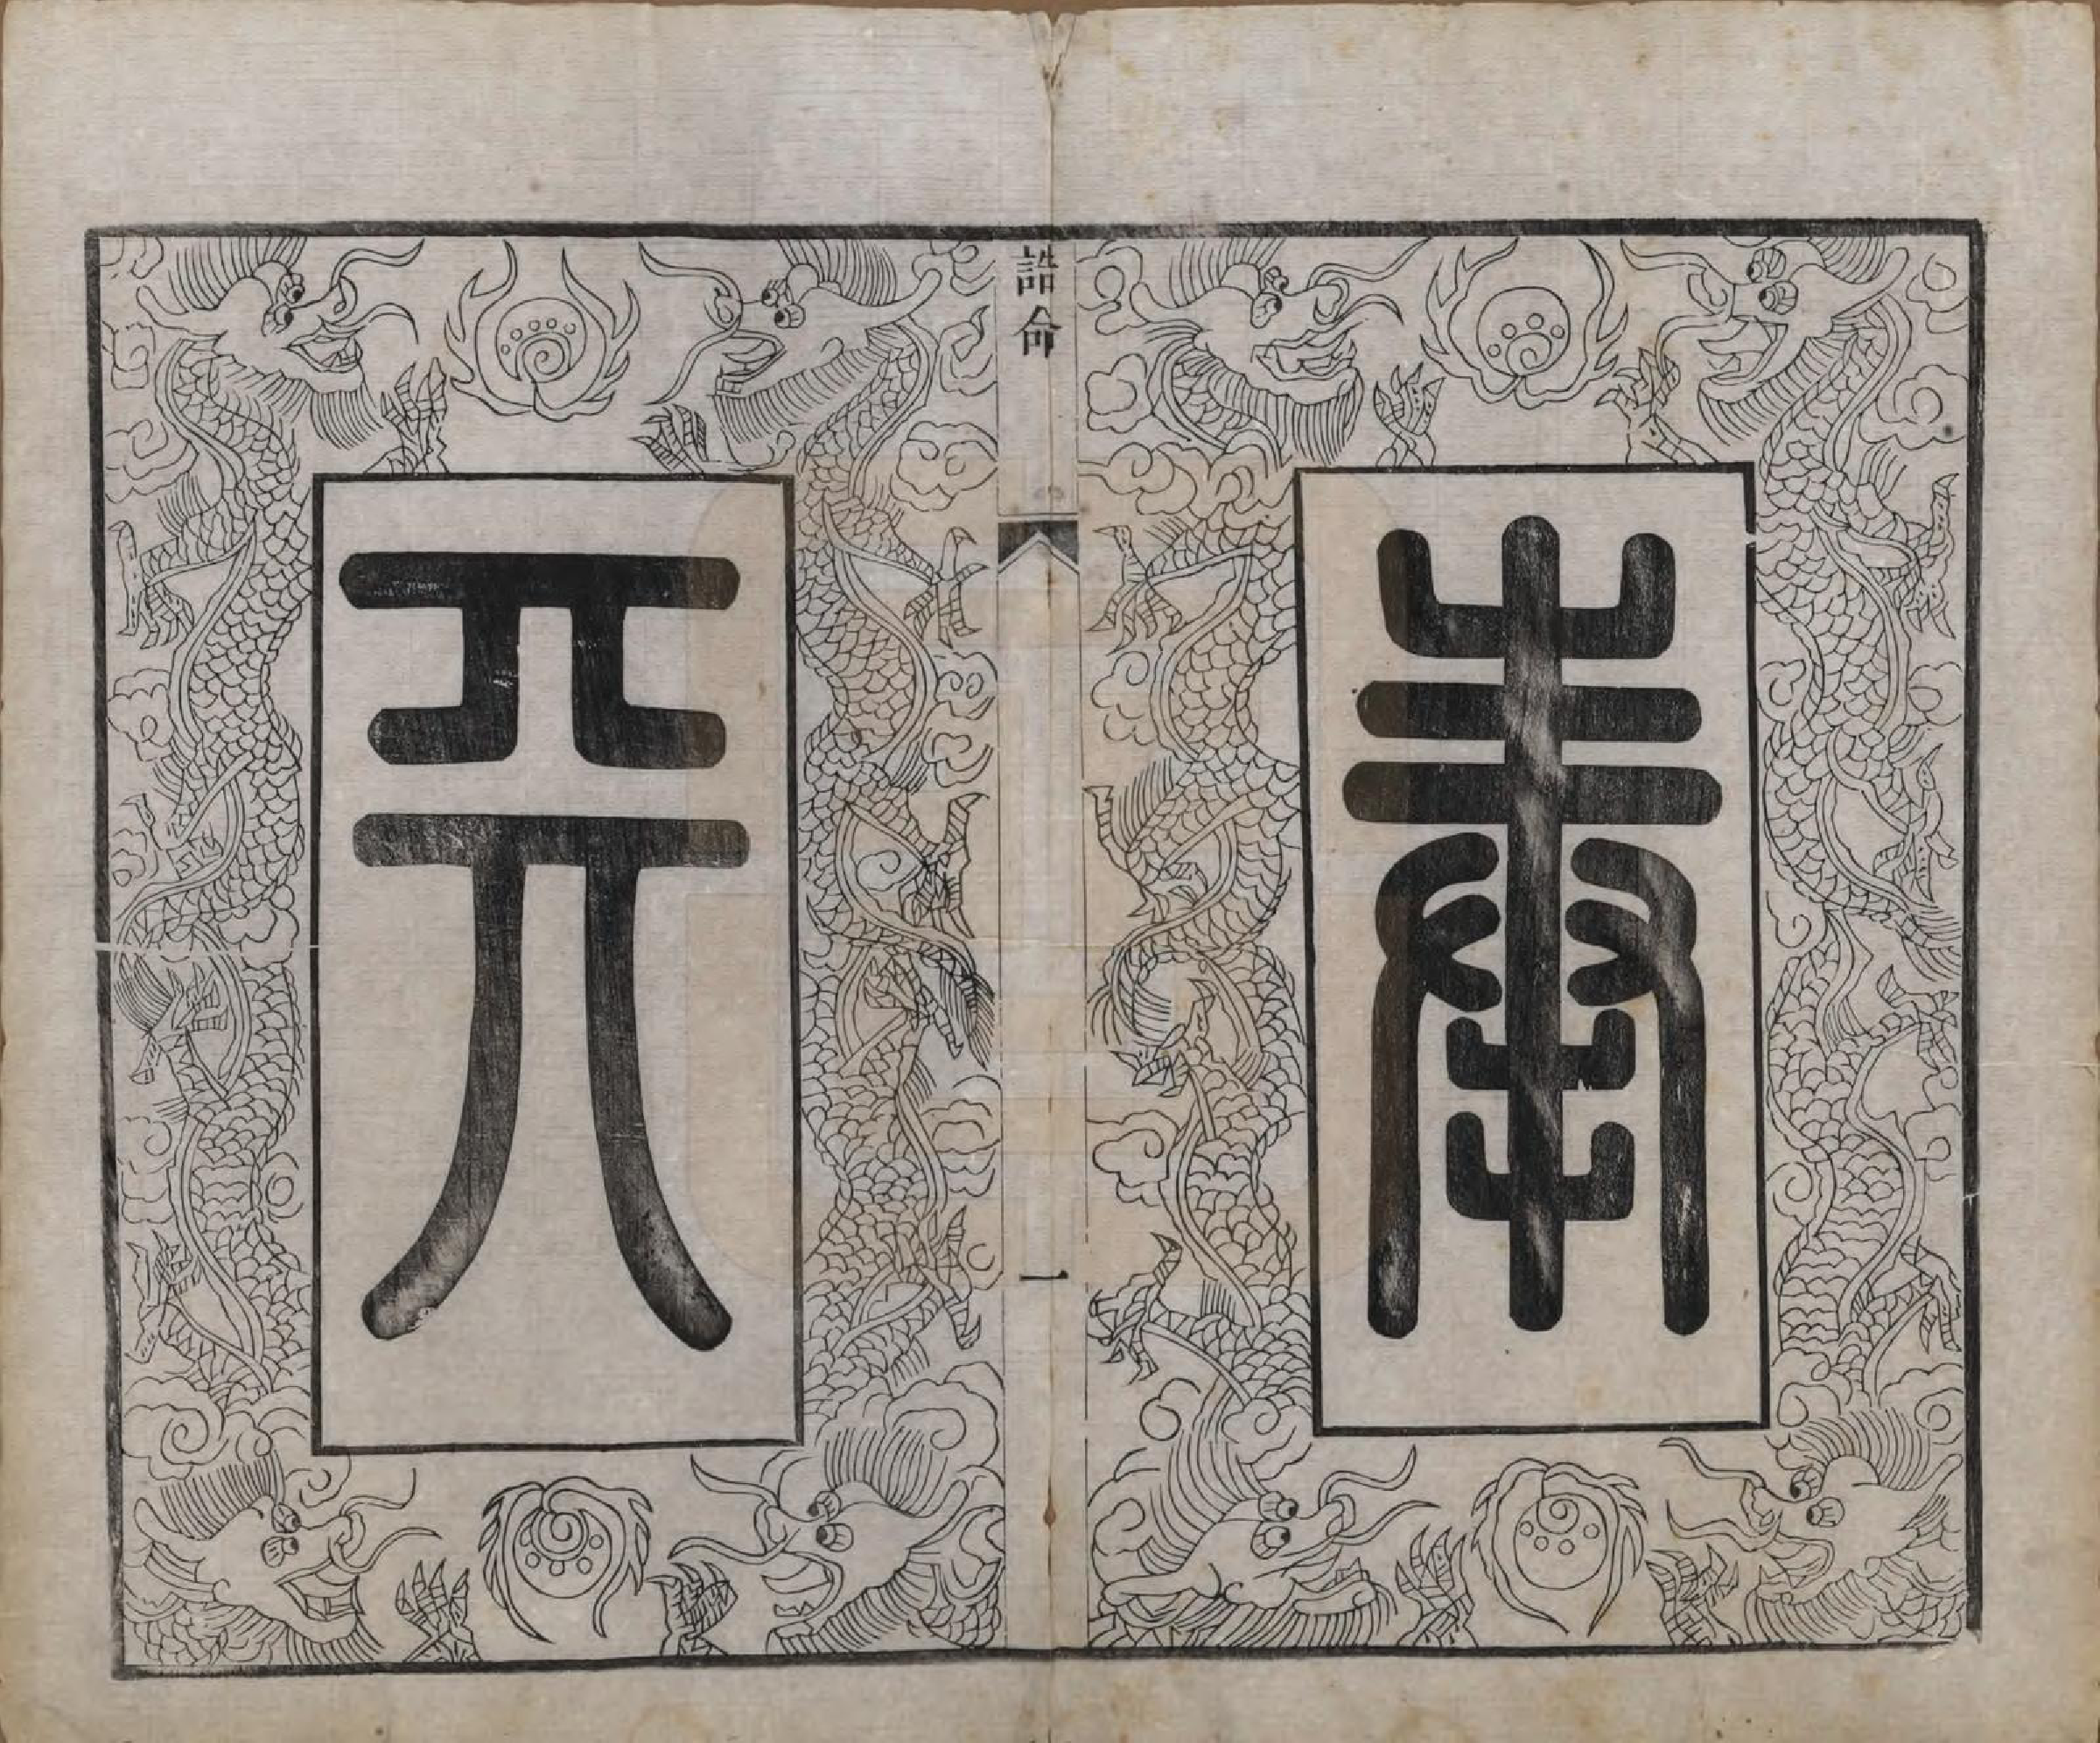 奉
誥命
一
天